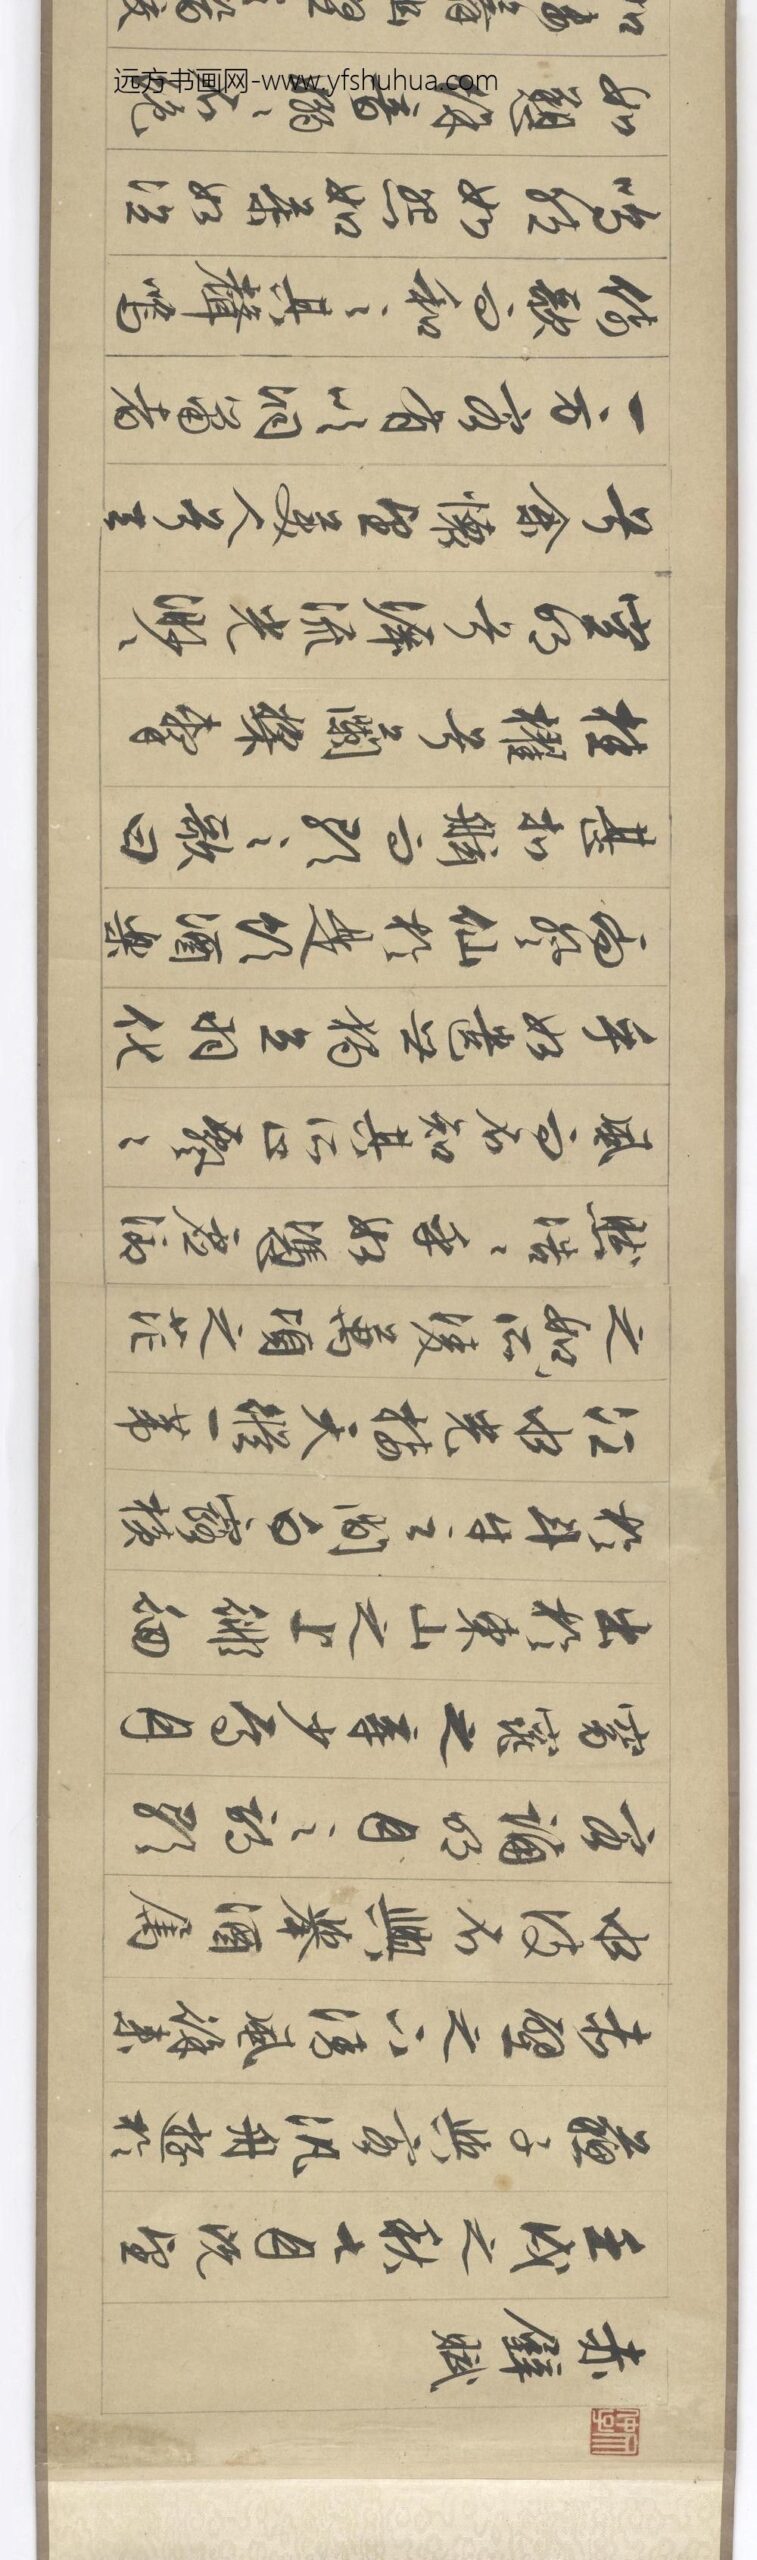 赤壁賦
壬戌之秋七月既望
蘇子與客汎舟遊於
赤壁之下清風徐來
水波不興舉酒屬
客誦明月之詩歌
窈窕之章少焉月
出於東山之上徘徊
於斗牛之間白露橫
江水光接天縱一葦
之如所凌萬頃之茫
然浩〻乎如馮虛御
風而不知其所止飄〻
乎如遺世獨立羽化
而登仙於是飲酒樂
甚扣舷而歌之歌曰
桂櫂兮蘭槳擊
空明兮泝流光渺〻
兮余懷望美人兮天
一方客有吹洞簫者
倚歌而和之其聲嗚
嗚然如怨如慕如泣
如訴餘音嫋〻不絕
远方书画网-www.yfshuhua.com